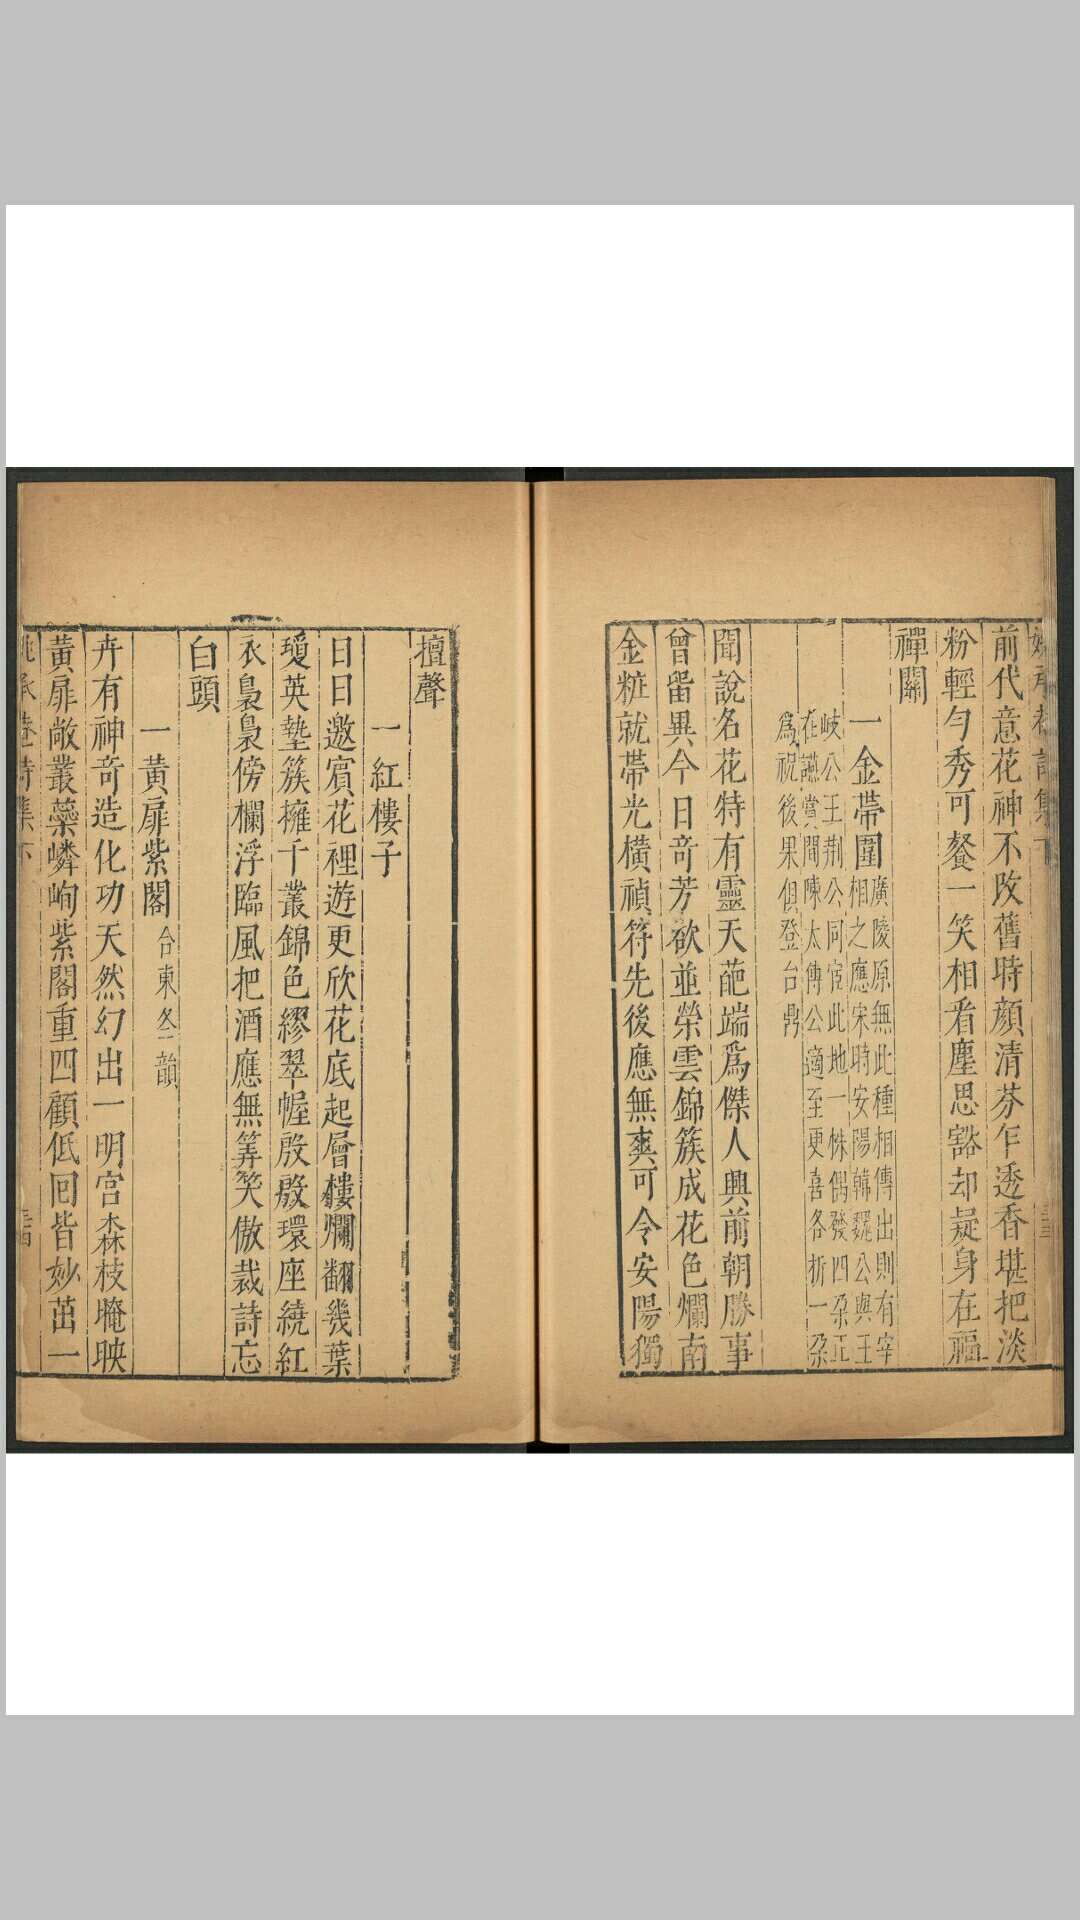 前代意花神不改舊時顔清芬乍透香堪把淡
粉輕勻秀可餐一笑相看塵思豁却疑身在福
禪關
一金帶圍
廣陵原無此種相傳出則有宰
相之應宋時安陽韓魏公與王
岐公王荆公同宦此地一株偶發四朶正
在讌賞間陳太傅公適至更喜各折一朶
爲祝後果俱登台鼎
聞說名花特有靈天葩端爲傑人興前朝勝事
曾留異今日奇芳欲並榮雲錦簇成花色爛南
金粧就帶光橫禎符先後應無爽可令安陽獨
擅聲
一紅樓子
日日邀賓花裡遊更欣花底起層樓爛翻幾葉
瓊英墊簇擁千叢錦色繆翠幄殷殷環座繞紅
衣裊裊傍欄浮臨風把酒應無筭笑傲裁詩忘
白頭
一黃扉紫閣
合東冬一韻
卉有神奇造化功天然幻出一明宮森枝掩映
黃扉敞叢蘂嶙峋紫閣重四顧低回皆妙茁一